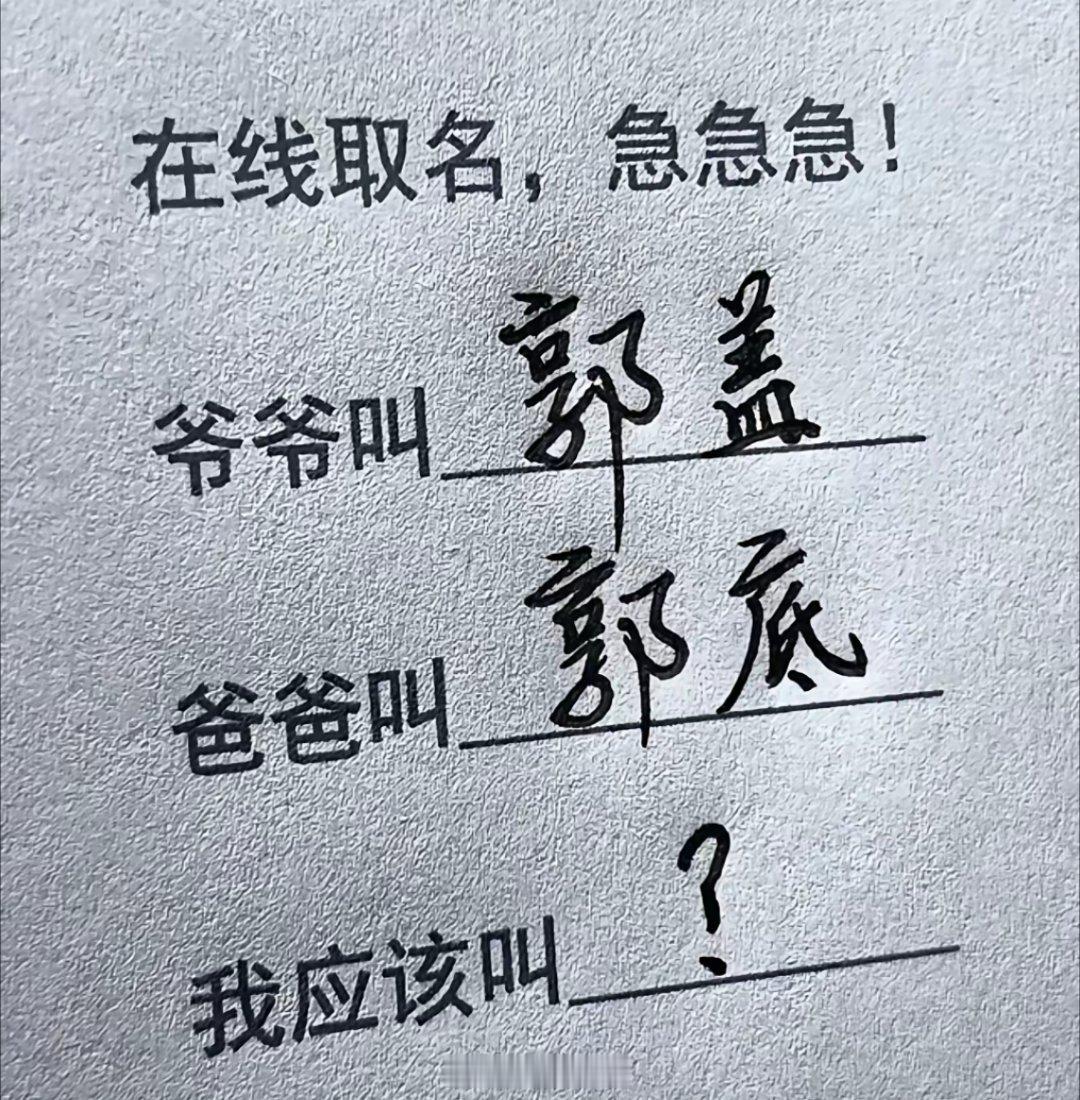 在线取名，急急急！
爷爷叫郭盖
爸爸叫郭底
我应该叫？